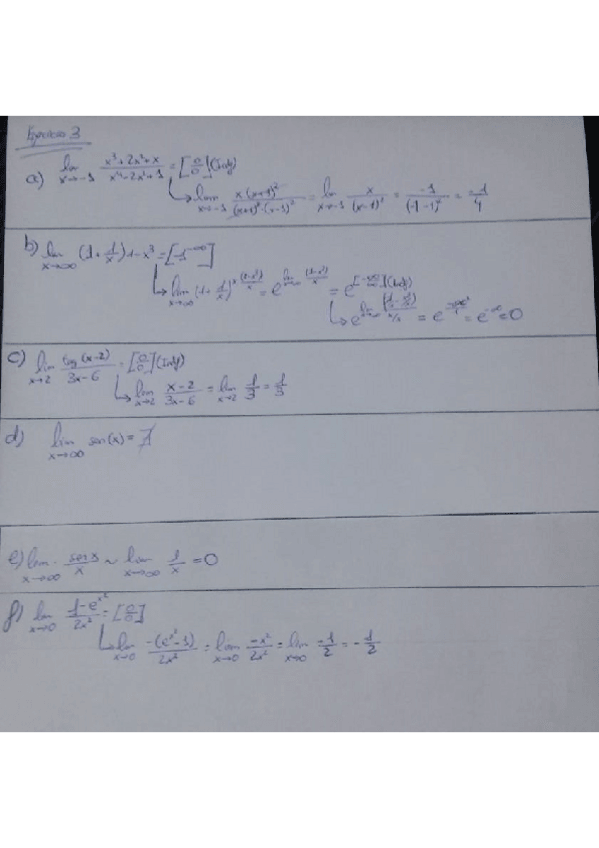 Ejercicio 3
a) lim x→-1 (x³+2x²+x)/(x⁴-2x²+1) = [0/0] (Ind)
↳ lim x→-1 x(x+1)²/((x+1)²·(x-1)²) = lim x→-1 x/(x-1)² = -1/(-1-1)² = -1/4
b) lim x→∞ (1+1/x)
↳ lim x→∞ (1+1/x)
= e^-∞ = 0
c) lim x→2 (x-2)/3x-6 = [0/0] (Ind)
↳ lim x→2 (x-2)/(3x-6) = lim x→2 1/3 = 1/3
d) lim x→∞ sen(x) = ∄
e) lim x→∞ senx/x ~ lim x→∞ 1/x = 0
f) lim x→0 (1-e^x²)/2x² = [0/0]
↳ lim x→0 -(e^x²-1)/2x² = lim x→0 -x²/2x² = lim x→0 -1/2 = -1/2